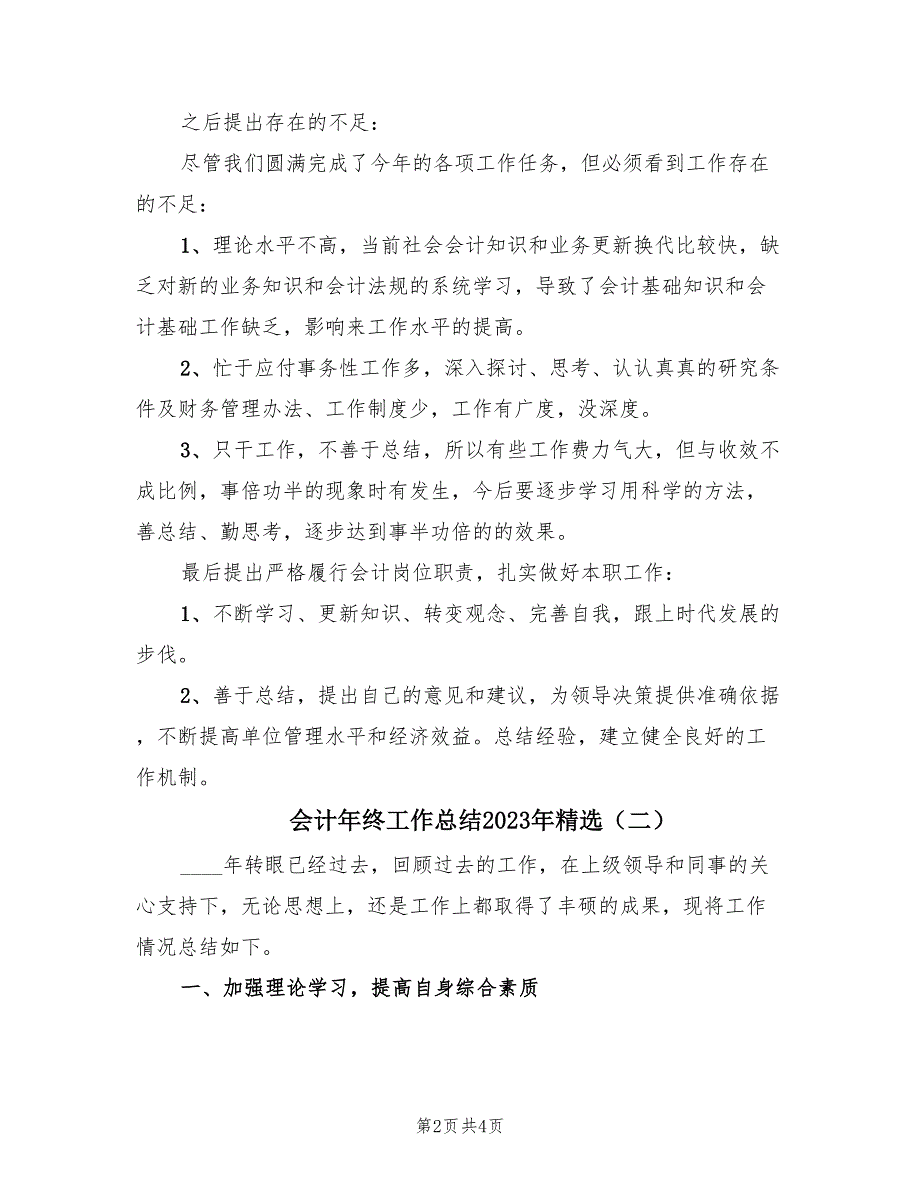 之后提出存在的不足：
尽管我们圆满完成了今年的各项工作任务，但必须看到工作存在
的不足：
1、理论水平不高，当前社会会计知识和业务更新换代比较快，缺
乏对新的业务知识和会计法规的系统学习，导致了会计基础知识和会
计基础工作缺乏，影响来工作水平的提高。
2、忙于应付事务性工作多，深入探讨、思考、认认真真的研究条
件及财务管理办法、工作制度少，工作有广度，没深度。
3、只干工作，不善于总结，所以有些工作费力气大，但与收效不
成比例，事倍功半的现象时有发生，今后要逐步学习用科学的方法，
善总结、勤思考，逐步达到事半功倍的的效果。
最后提出严格履行会计岗位职责，扎实做好本职工作：
1、不断学习、更新知识、转变观念、完善自我，跟上时代发展的
步伐。
2、善于总结，提出自己的意见和建议，为领导决策提供准确依据
，不断提高单位管理水平和经济效益。总结经验，建立健全良好的工
作机制。
会计年终工作总结2023年精选（二）
____年转眼已经过去，回顾过去的工作，在上级领导和同事的关
心支持下，无论思想上，还是工作上都取得了丰硕的成果，现将工作
情况总结如下。
一、加强理论学习，提高自身综合素质
第2页共4页